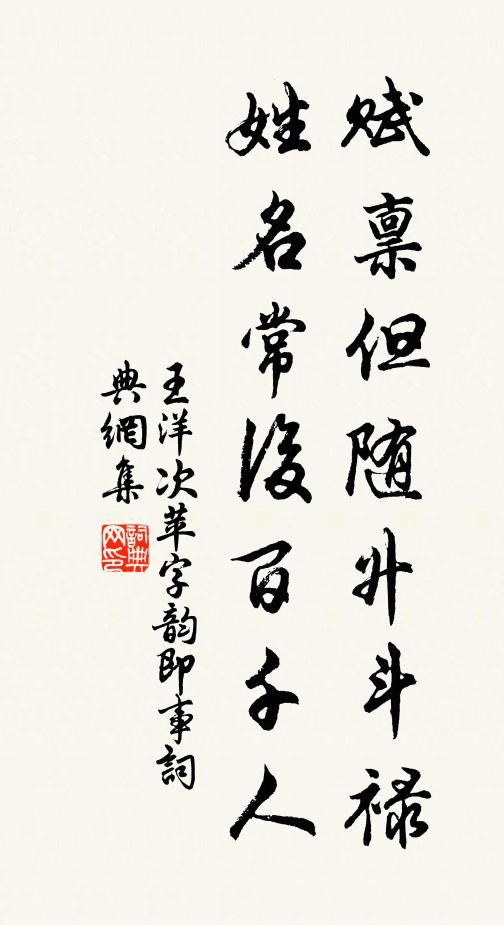 赋禀但随升斗禄
姓名常後百千人
王洋次苹字韵即事詞
典網集
詞典网印